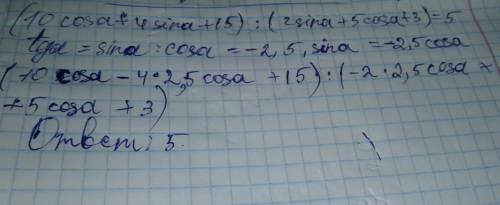 (10 cosa + 4 sina + 15) : (2 sina + 5 cosa + 3) = 5
tga = sina : cosa = -2,5, sina = -2,5 cosa
(10 cosa - 4 · 2,5 cosa + 15) : (-2 · 2,5 cosa +
+ 5 cosa + 3)
Ответ: 5.